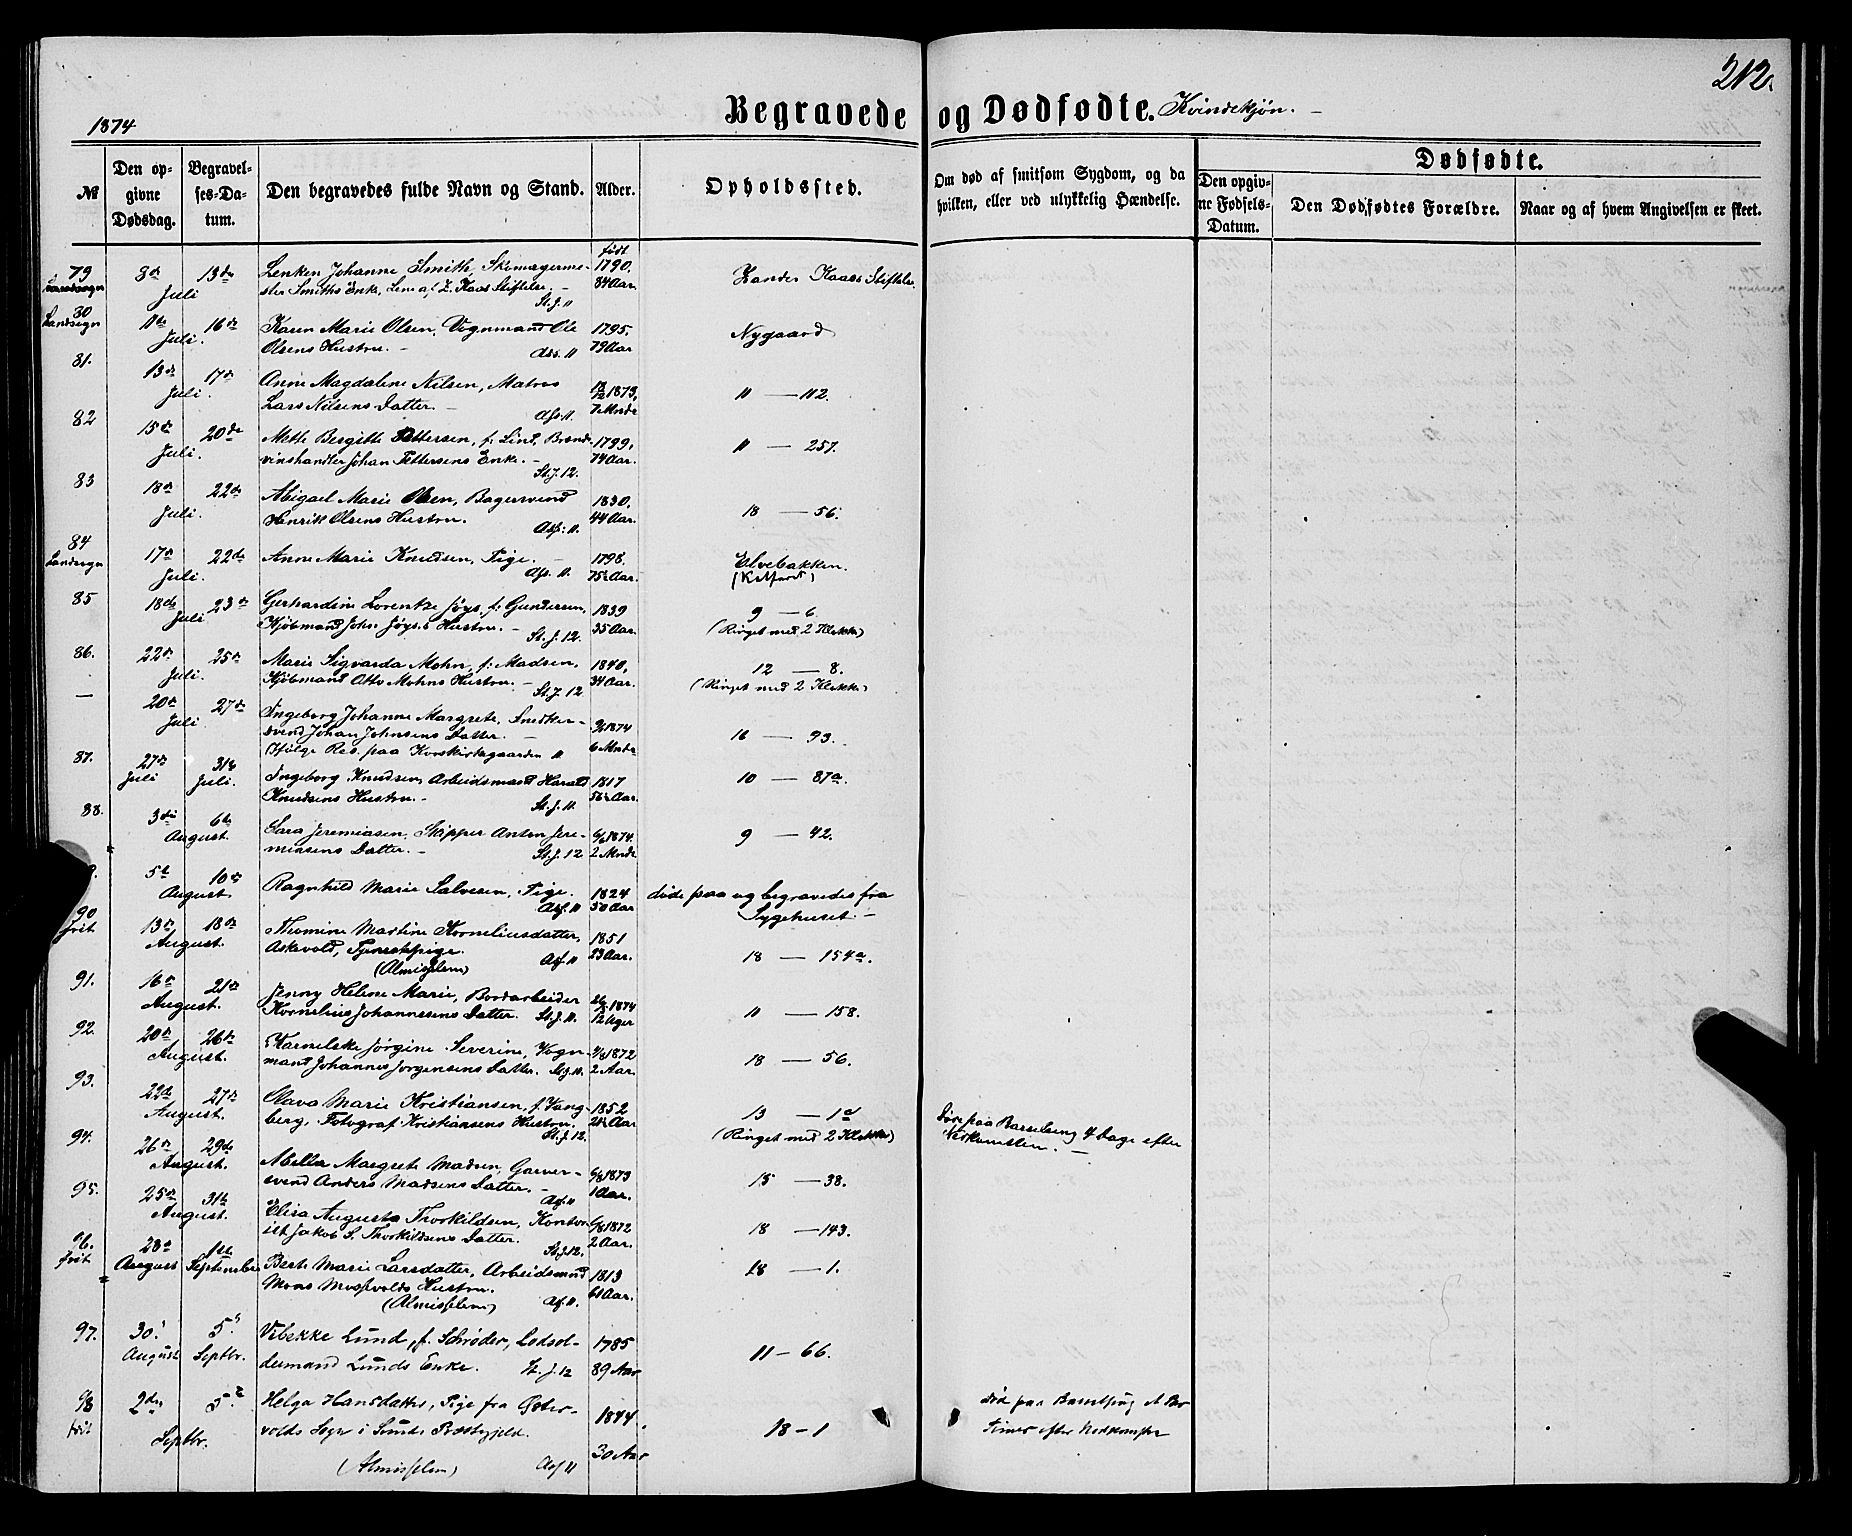 212.
1874
Begravede og Dødfødte. Kvindekjøn. —
№
Den op-
givne
Dødsdag.
Begravel-
ses-Da-
tum.
Den begravedes fulde Navn og Stand.
Alder.
Opholdssted.
Om død af smitsom Sygdom, og da
hvilken, eller ved ulykkelig Hændelse.
Dødfødte.
Den opgiv-
ne Fødsels-
Datum.
Den Dødfødtes Forældre.
Naar og af hvem Angivelsen er skeet.
79 8de Juli 13de Lenken Johanne Smith, født 1790. Zander Kaaes Stiftelse.
ster Smiths Enke, Lem af Z. Kaas Stiftelse. — St. J. 11 84 Aar.
80 Landsogn 11te Juli. 16de Karen Marie Olsen, Vognmand Ole 1795. Nygaard
Olsens Hustru. — Ass. 11 79 Aar
81. 13de Juli. 17de Anne Magdalene Nilsen, Matros 1873, 11 — 112.
Lars Nilsens Datter. — Ass. 11. 7 Mnde
82 15de Juli. 20de Mette Bergitte Pettersen, f: Lind, Brænde- 1799, 11 — 257.
vinshandler Johan Pettersens Enke. — St. J. 12. 74 Aar.
83 18de Juli. 22de Abigael Marie Olsen, Bagersvend 1830. 18 — 56.
Henrik Olsens Hustru. Ass: 11. 44 Aar.
84 Landsogn 17de Juli. 22de Anne Marie Knudsen, Pige. — 1798. Elvebakken.
Ass. 11. 75½ Aar.
85 18de Juli 23de Gerhardine Lorentze Jøys, f: Gundersen, 1839 9 — 6
Kjøbmand Johs Jøys.s Hustru. — St. J. 12. 35 Aar. (Ringet med 2 Klokker)
86. 22de Juli. 25de Marie Sigvarda Mohn, f: Madsen, 1840, 12 — 8.
Kjøbmand Otto Mohns Hustru. — St. J. 12 34 Aar. (Ringet med 2 Klokker)
— 20de Juli 27de Ingeborg Johanne Margrete, Snedker- 1874 16 — 93.
svend Johan Johnsens Datter. — 6 Mnde
Ifølge Res. paa Korskirkegaarden 11
87. 27de Juli 31te Juli. Ingeborg Knudsen, Arbeidsmand Harald 1817 10 — 87a.
Knudsens Hustru. — St. J. 11. 56½ Aar.
88. 3die August. 6te Sara Jeremiasen, Skipper Anton Jere- 1874. 9 — 42.
miasens Datter. — St. J. 12 2 Mnde
5te August 10de Ragnhild Marie Salvesen, Pige. 1824 døde paa og begravedes fra
Ass. 11 50 Aar Sygehuset. —
90 frit 13de August 18de Thomine Martine Korneliusdatter, 1851 18 — 154a.
Askevold, Tjenestepige. Ass. 11 23 Aar.
(Almisselem)
91. 16de August. 21de Jenny Helene Marie, Bordarbeider 1874 11 — 158.
Kornelius Johannesens Datter. St. J. 11. 12 Uger
92. 20de August. 26de Karnelske Jørgine Severine, Vogn- 1872 18 — 56.
mand Johannes Jørgensens Datter. St. J. 11. 2 Aar.
93. 22de August. 27de Olava Marie Kristiansen, f. Vang- 1852 13 — 1d
berg, Fotograf Kristiansens Hustru. St. J. 12. 21½ Aar (Ringet med 2 Klokker)
Døde paa Barselseng 4 Dage efter
Nedkomsten. —
94. 26de August. 29de Abella Margrete Madsen, Garver- 1873 15 — 38.
svend Anders Madsens Datter. — Ass. 11 1 Aar.
95. 25de August. 31te Elisa Augusta Thorkildsen, Kontor- 1872 18 — 143.
ist Jakob S. Thorkildsens Datter. St. J. 12. 2 Aar.
96. frit 28de August 1ste September Berte Marie Larsdatter, Arbeidsmand 1813 18 — 1.
Mons Hustru. 61 Aar.
(Almisselem) Ass. 11.
97. 30. August 5. Septbr. Vibekke Lund, f. Schrøder, Lodsol- 1785 11 – 66.
dermand Lunds Enke. St. J. 12 89 Aar
98 frit 2den Septbr. 5. Helga Hansdatter, Pige fra Øster- 1844. 18 – 1
volds Sogn i Sunds Præstegjeld. 30 Aar
(Almisselem) Ass. 11
død paa Barselseng
Timer efter Nedkomsten